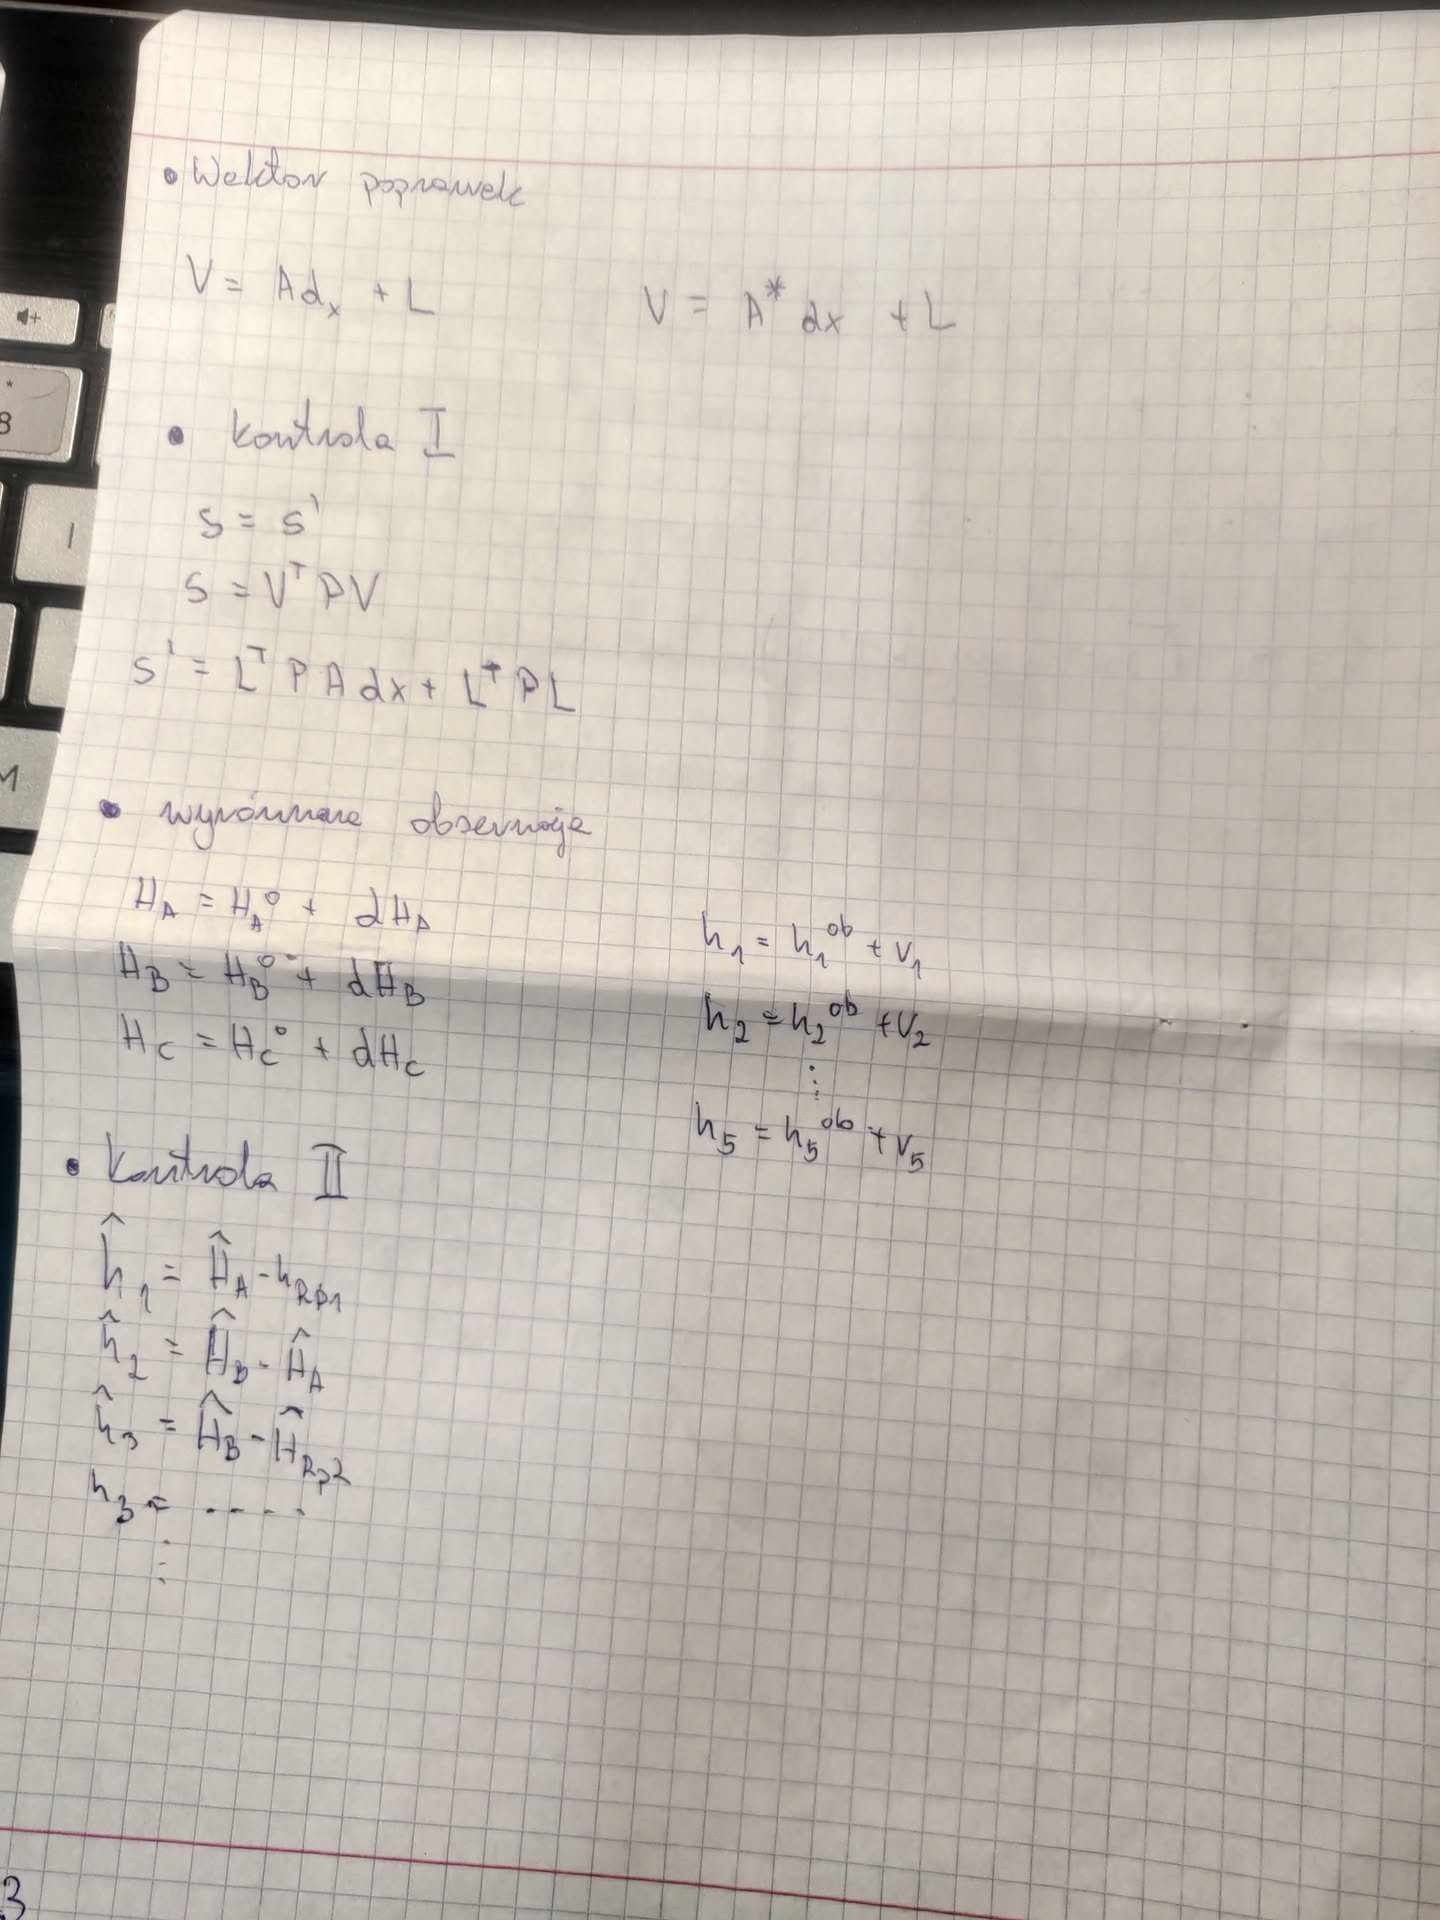 • Wektor poprawek
V = Adx + L
V = A* dx + L
• kontrola I
S = S'
S = Vᵀ P V
S' = Lᵀ P A dx + Lᵀ P L
• wyrównane obserwacje
H_A = H_A° + dH_A
H_B = H_B° + dH_B
H_C = H_C° + dH_C
h₁ = h₁ᵒᵇ + v₁
h₂ = h₂ᵒᵇ + v₂
⋮
h₅ = h₅ᵒᵇ + v₅
• Kontrola II
ĥ₁ = Ĥ_A - h_Rp1
ĥ₂ = Ĥ_B - Ĥ_A
ĥ₃ = Ĥ_B - Ĥ_Rp2
h₃ = ....
⋮
8
M
3